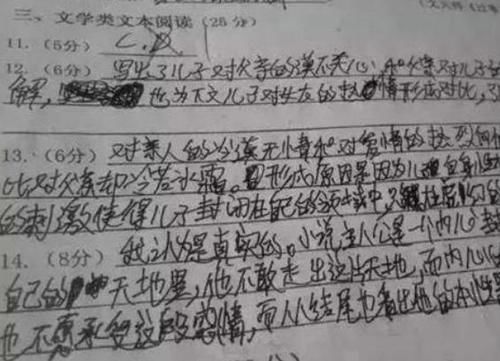 三、文学类文本阅读(25分)
11.(5分) C.B
12.(6分) 写出了儿子对父亲的漠不关心,和父亲对儿子
解, 也为下文儿子对女友的热情形成对比,
13.(6分) 对亲人的冷漠无情和对爱情的热烈
比对父亲却冷若冰霜。形成原因是因为儿
的刺激使得儿子封闭在自己的领域中,
14.(8分) 我认为是真实的。小说主人公是一个内心封
自己的 天地里,他不敢走出这片天地,而内心
也不愿承受这段感情,而从结尾也看出他的本性